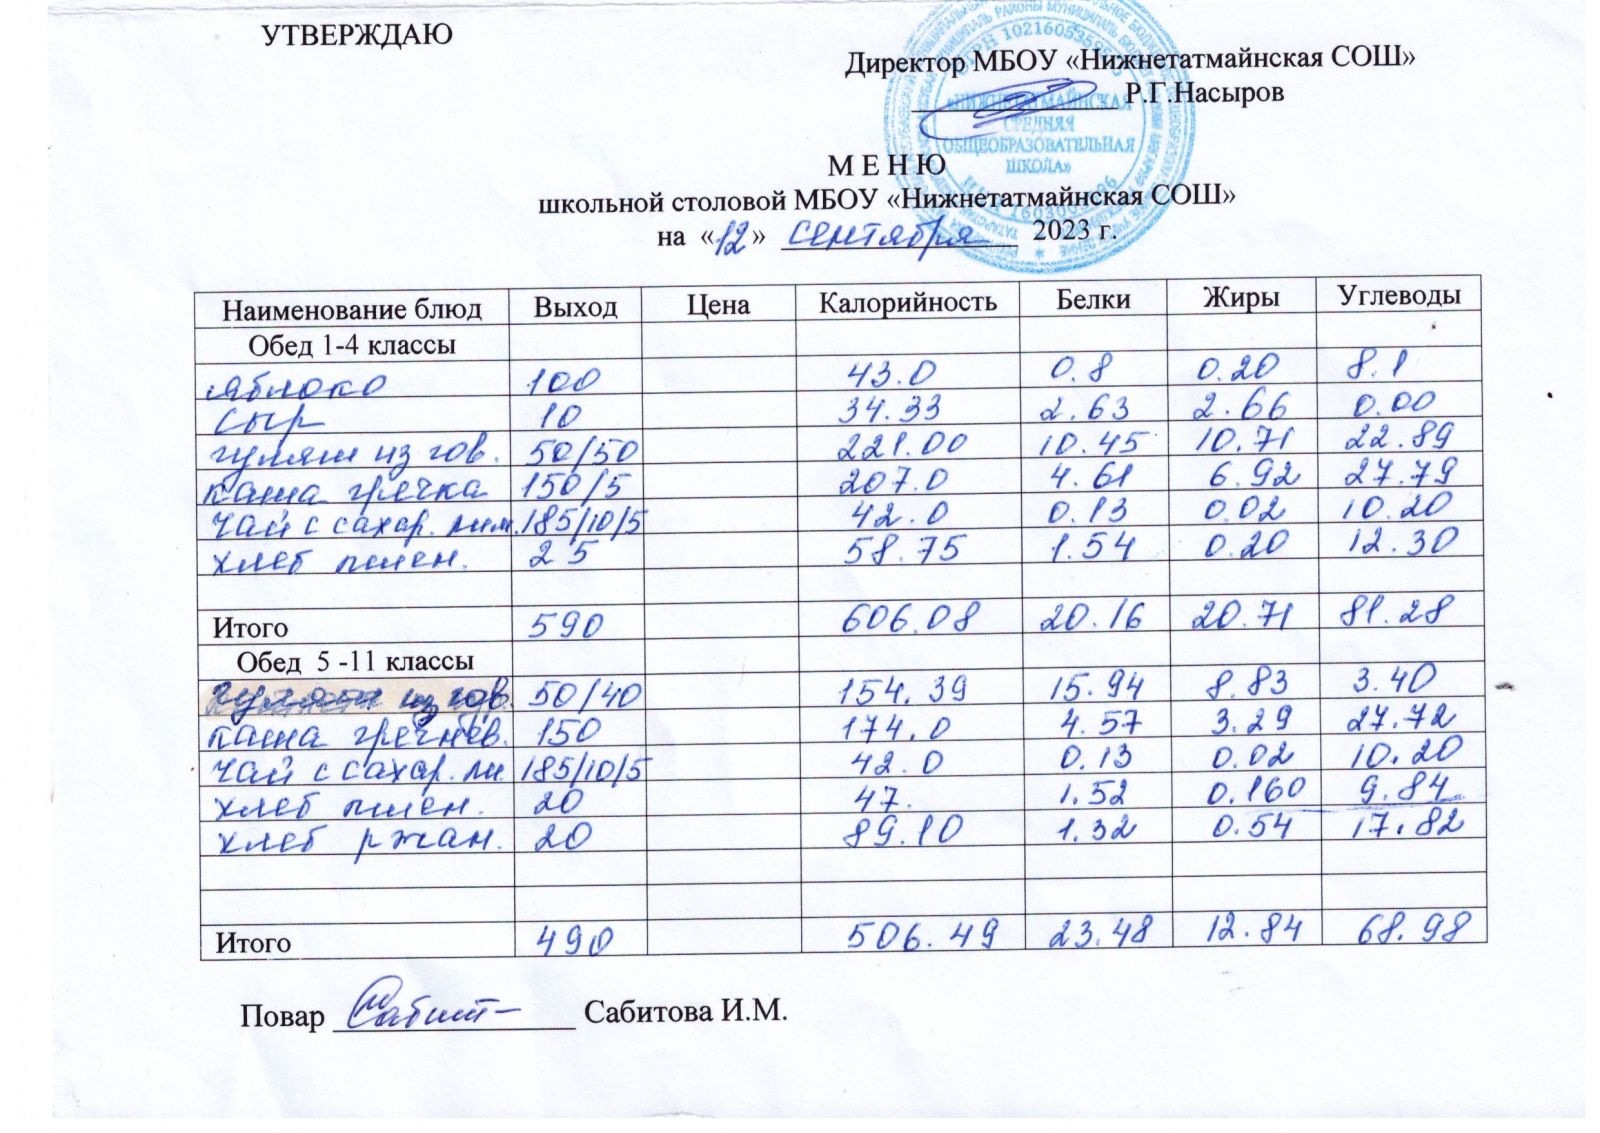 УТВЕРЖДАЮ
Директор МБОУ «Нижнетатмайнская СОШ»
Р.Г.Насыров
«НИЖНЕТАТМАЙНСКАЯ
СРЕДНЯЯ
ОБЩЕОБРАЗОВАТЕЛЬНАЯ
ШКОЛА»
М Е Н Ю
школьной столовой МБОУ «Нижнетатмайнская СОШ»
на «12» сентября 2023 г.
Наименование блюд Выход Цена Калорийность Белки Жиры Углеводы
Обед 1-4 классы
яблоко 100 43.0 0.8 0.20 8.1
сыр 10 34.33 2.63 2.66 0.00
гуляш из гов. 50/50 221.00 10.45 10.71 22.89
каша гречка 150/5 207.0 4.61 6.92 27.79
чай с сахар. лим. 185/10/5 42.0 0.13 0.02 10.20
хлеб пшен. 25 58.75 1.54 0.20 12.30
Итого 590 606.08 20.16 20.71 81.28
Обед 5 -11 классы
гуляш из гов. 50/40 154.39 15.94 8.83 3.40
каша гречнев. 150 174.0 4.57 3.29 27.72
чай с сахар. ли 185/10/5 42.0 0.13 0.02 10.20
хлеб пшен. 20 47. 1.52 0.160 9.84
хлеб ржан. 20 89.10 1.32 0.54 17.82
Итого 490 506.49 23.48 12.84 68.98
Повар Сабит Сабитова И.М.